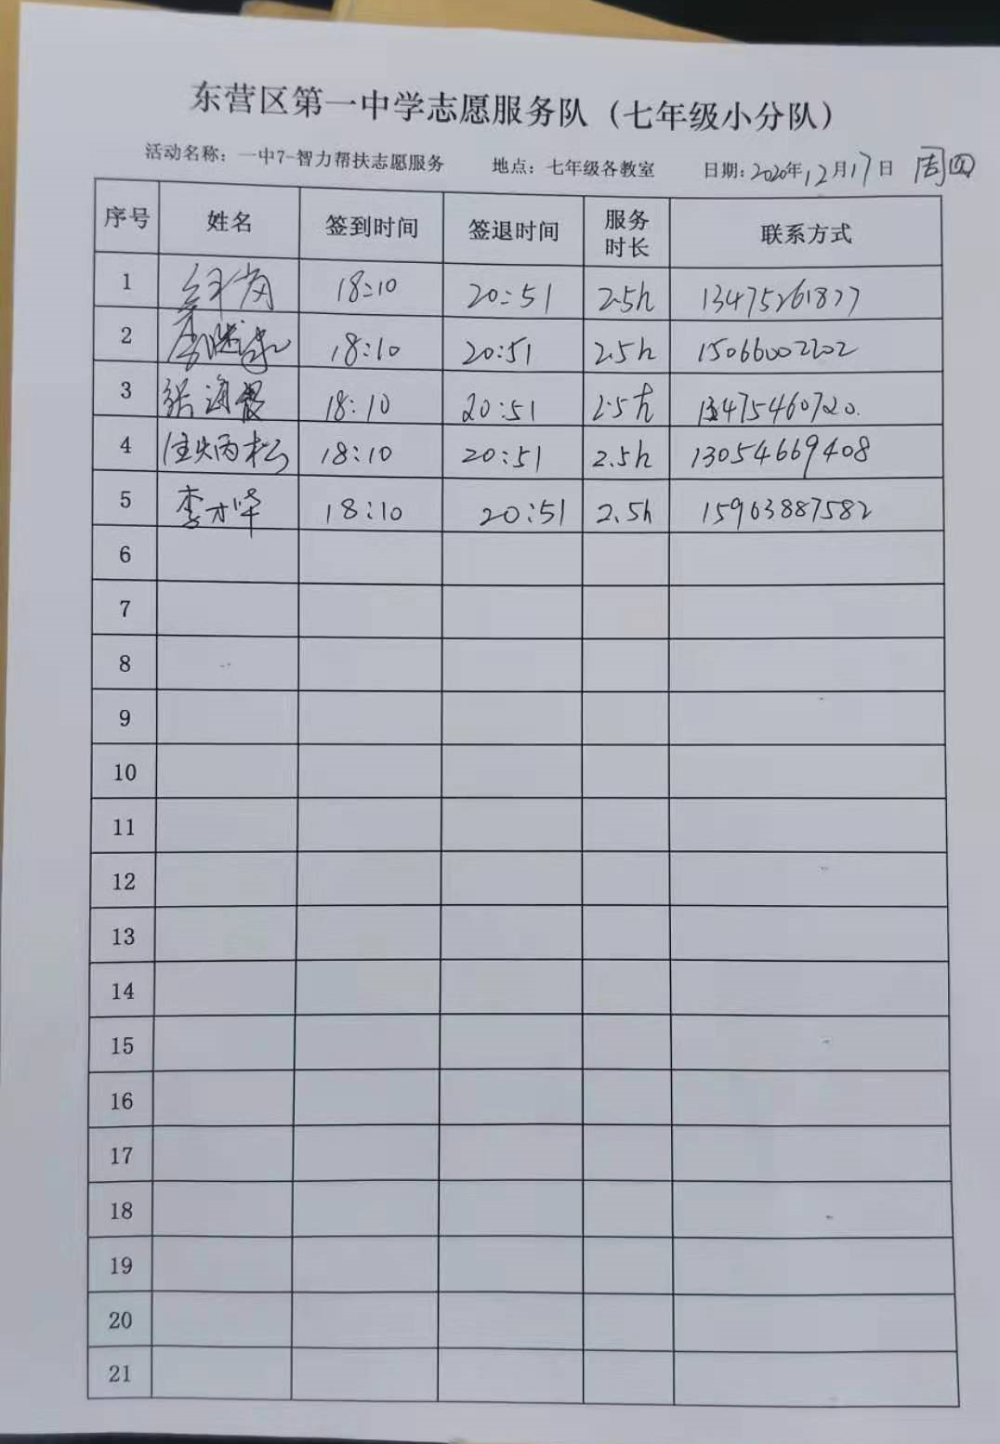 东营区第一中学志愿服务队（七年级小分队）
活动名称：一中7-智力帮扶志愿服务 地点：七年级各教室 日期：2020年12月17日 周四
序号 姓名 签到时间 签退时间 服务时长 联系方式
1 18:10 20:51 2.5h 13475261877
2 18:10 20:51 2.5h 15066002202
3 张海霞 18:10 20:51 2.5h 13475460720.
4 炳松 18:10 20:51 2.5h 13054669408
5 李才华 18:10 20:51 2.5h 15963887582
6
7
8
9
10
11
12
13
14
15
16
17
18
19
20
21